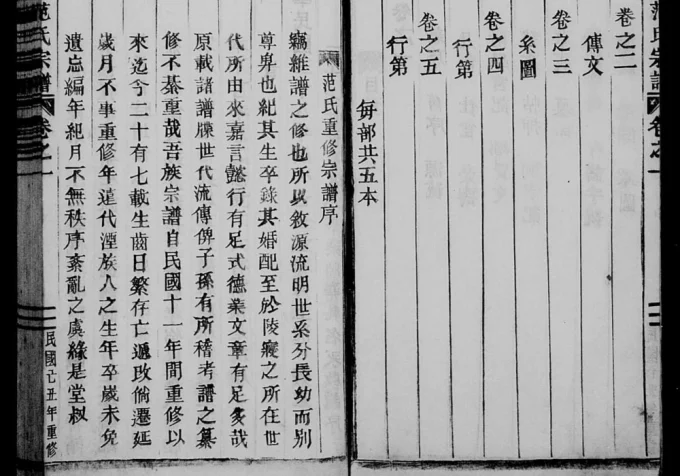 范氏宗譜
卷之一
卷之二
傳文
卷之三
系圖
卷之四
行第
卷之五
行第
每部共五本
范氏重修宗譜序
竊維譜之修也所以敘源流明世系分長幼而別
尊卑也紀其生卒錄其婚配至於陵寢之所在世
代所由來嘉言懿行有足式德業文章有足多哉
原載諸譜牒世代流傳俾子孫有所稽考譜之纂
修不綦重哉吾族宗譜自民國十一年間重修以
來迄今二十有七載生齒日繁存亡遞改倘遷延
歲月不事重修年遠代湮族人之生年卒歲未免
遺忘編年紀月不無秩序紊亂之虞緣是堂叔
范氏宗譜
卷之一
民國己丑年重修